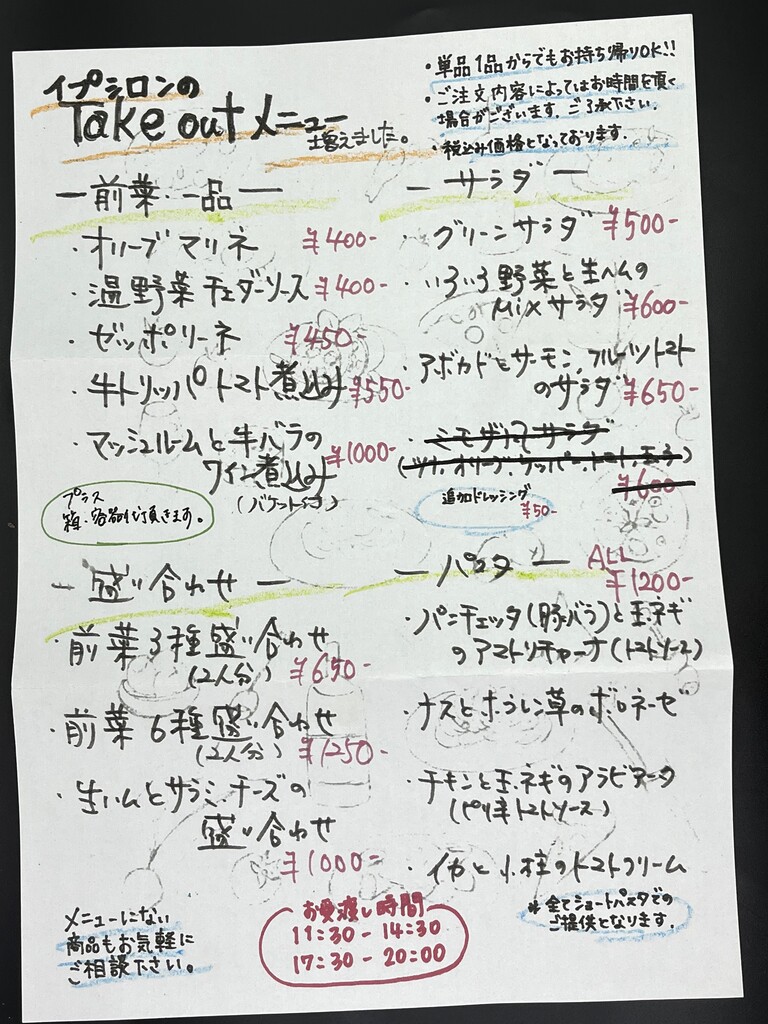 イプシロンの
Take outメニュー
増えました。
・単品1品からでもお持ち帰りOK!!
・ご注文内容によってはお時間を頂く
場合がございます。ご了承下さい。
・税込み価格となっております。
ー前菜・一品ー
・オリーブマリネ ¥400-
・温野菜チェダーソース ¥400-
・ゼッポリーネ ¥450-
・牛トリッパトマト煮込み ¥550-
・マッシュルームと牛バラの
ワイン煮込み ¥1000-
(バケット付)
プラス
箱・容器代頂きます。
ーサラダー
・グリーンサラダ ¥500-
・いろいろ野菜と生ハムの
Mixサラダ ¥600-
・アボカドとサーモン、フルーツトマト
のサラダ ¥650-
・ミモザ風サラダ
(ツナ、オリーブ、ケッパー、トマト、玉子)
¥600-
追加ドレッシング
¥50-
ー盛り合わせー
・前菜3種盛り合わせ
(2人分) ¥650-
・前菜6種盛り合わせ
(2人分) ¥1250-
・生ハムとサラミ、チーズの
盛り合わせ
¥1000-
ーパスター ALL
¥1200-
・パンチェッタ(豚バラ)と玉ネギ
のアマトリチャーナ(トマトソース)
・ナスとホウレン草のボロネーゼ
・チキンと玉ネギのアラビアータ
(ピリ辛トマトソース)
・イカと小柱のトマトクリーム
*全てショートパスタでの
ご提供となります。
メニューにない
商品もお気軽に
ご相談下さい。
お受渡し時間
11:30-14:30
17:30-20:00